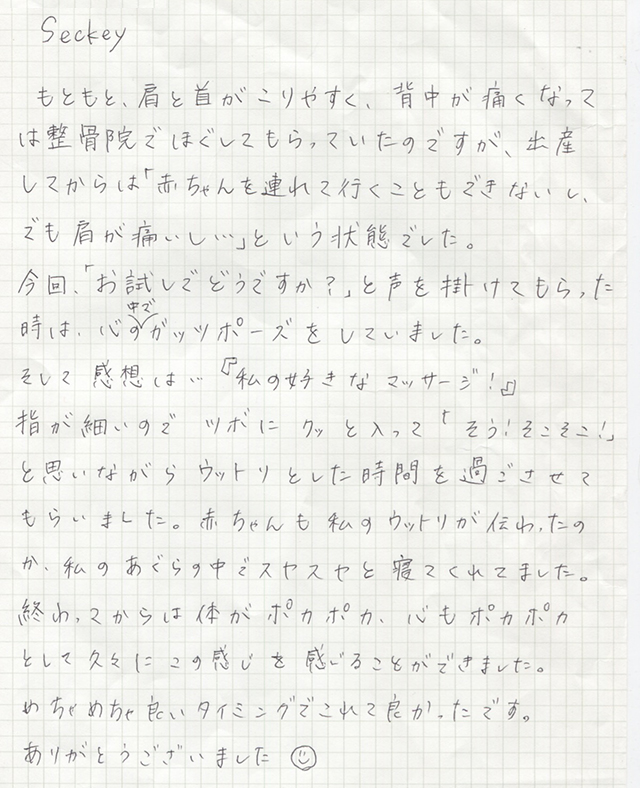 Seckey
もともと、肩と首がこりやすく、背中が痛くなって
は整骨院でほぐしてもらっていたのですが、出産
してからは「赤ちゃんを連れて行くこともできないし、
でも肩が痛いし…」という状態でした。
今回、「お試しでどうですか?」と声を掛けてもらった
時は、心の中でガッツポーズをしていました。
そして感想は…『私の好きなマッサージ!』
指が細いのでツボにクッと入って「そう!そこそこ!」
と思いながらウットリとした時間を過ごさせて
もらいました。赤ちゃんも私のウットリが伝わったの
か、私のあぐらの中でスヤスヤと寝てくれてました。
終わってからは体がポカポカ、心もポカポカ
として久々にこの感じを感じることができました。
めちゃめちゃ良いタイミングでこれて良かったです。
ありがとうございました☺